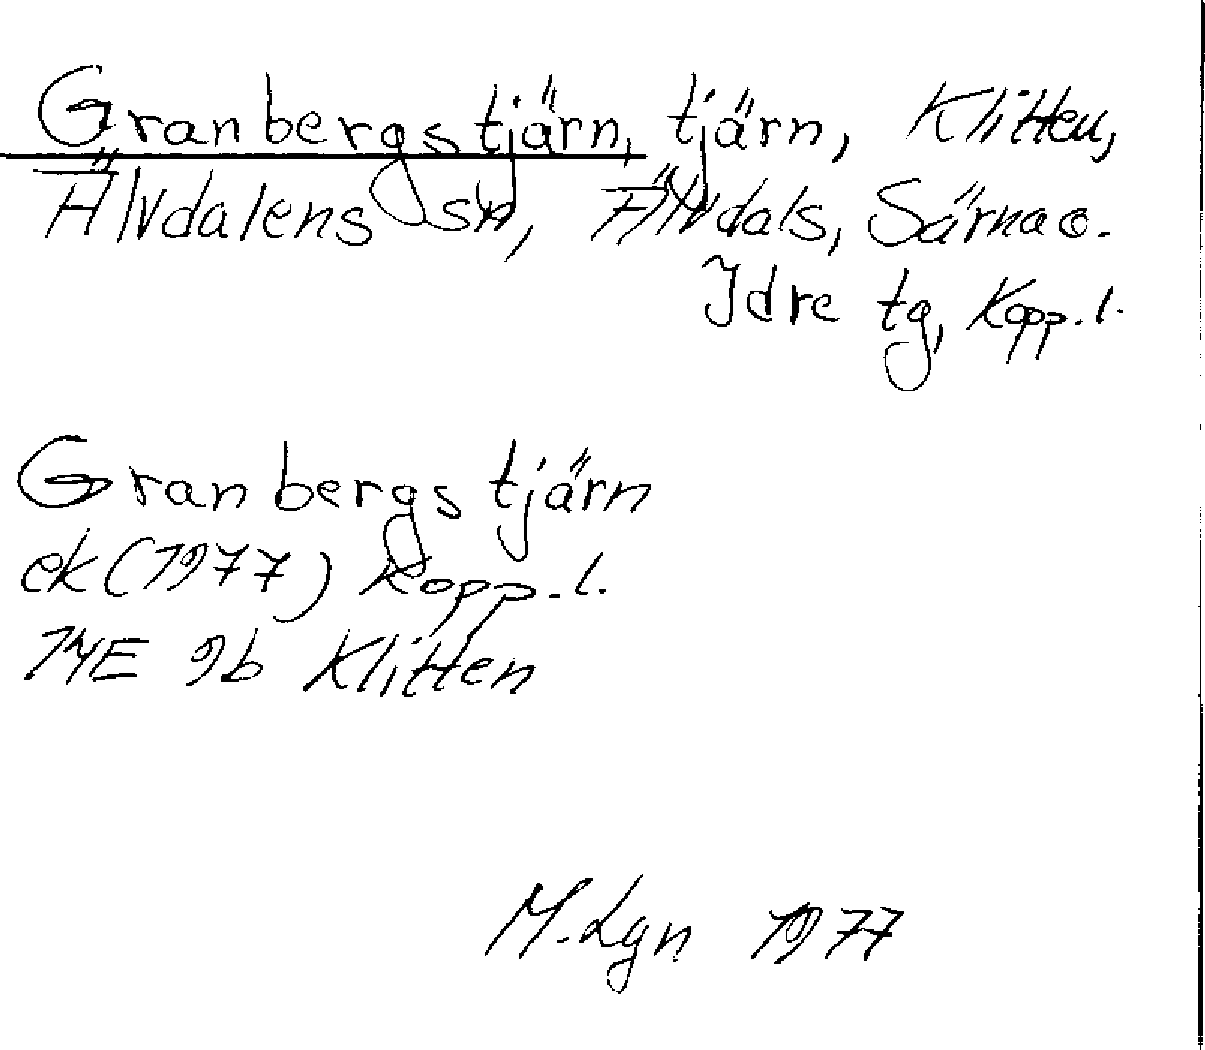 Granbergstjärn, tjärn, Klitten,
Älvdalens sn, Älvdals, Särna o.
Idre tg, Kopp. l.
Granbergstjärn
ek (1977) Kopp. l.
14E 9b Klitten
M. Lgn 1977